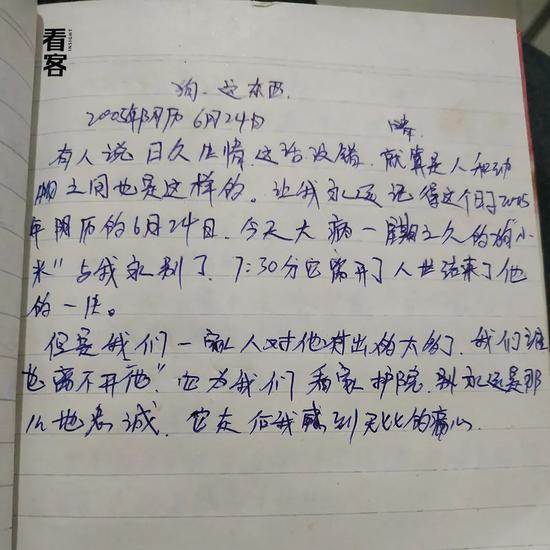 看客
INSIGHT
狗、这东西.
2005年阴历 6月24日 晴.
有人说 日久生情.这话没错.就算是人和动
物之间也是这样的。让我永远记得这个日子2005
年阴历的6月24日.今天大病一星期之久的狗"小
米"与我永别了.7:30分它离开了人世结束了他
的一生。
但是我们一家人对他付出的太多了.我们谁
也离不开他".它为我们看家护院.到永远是那
么地忠诚.它在 我感到无比的痛心.